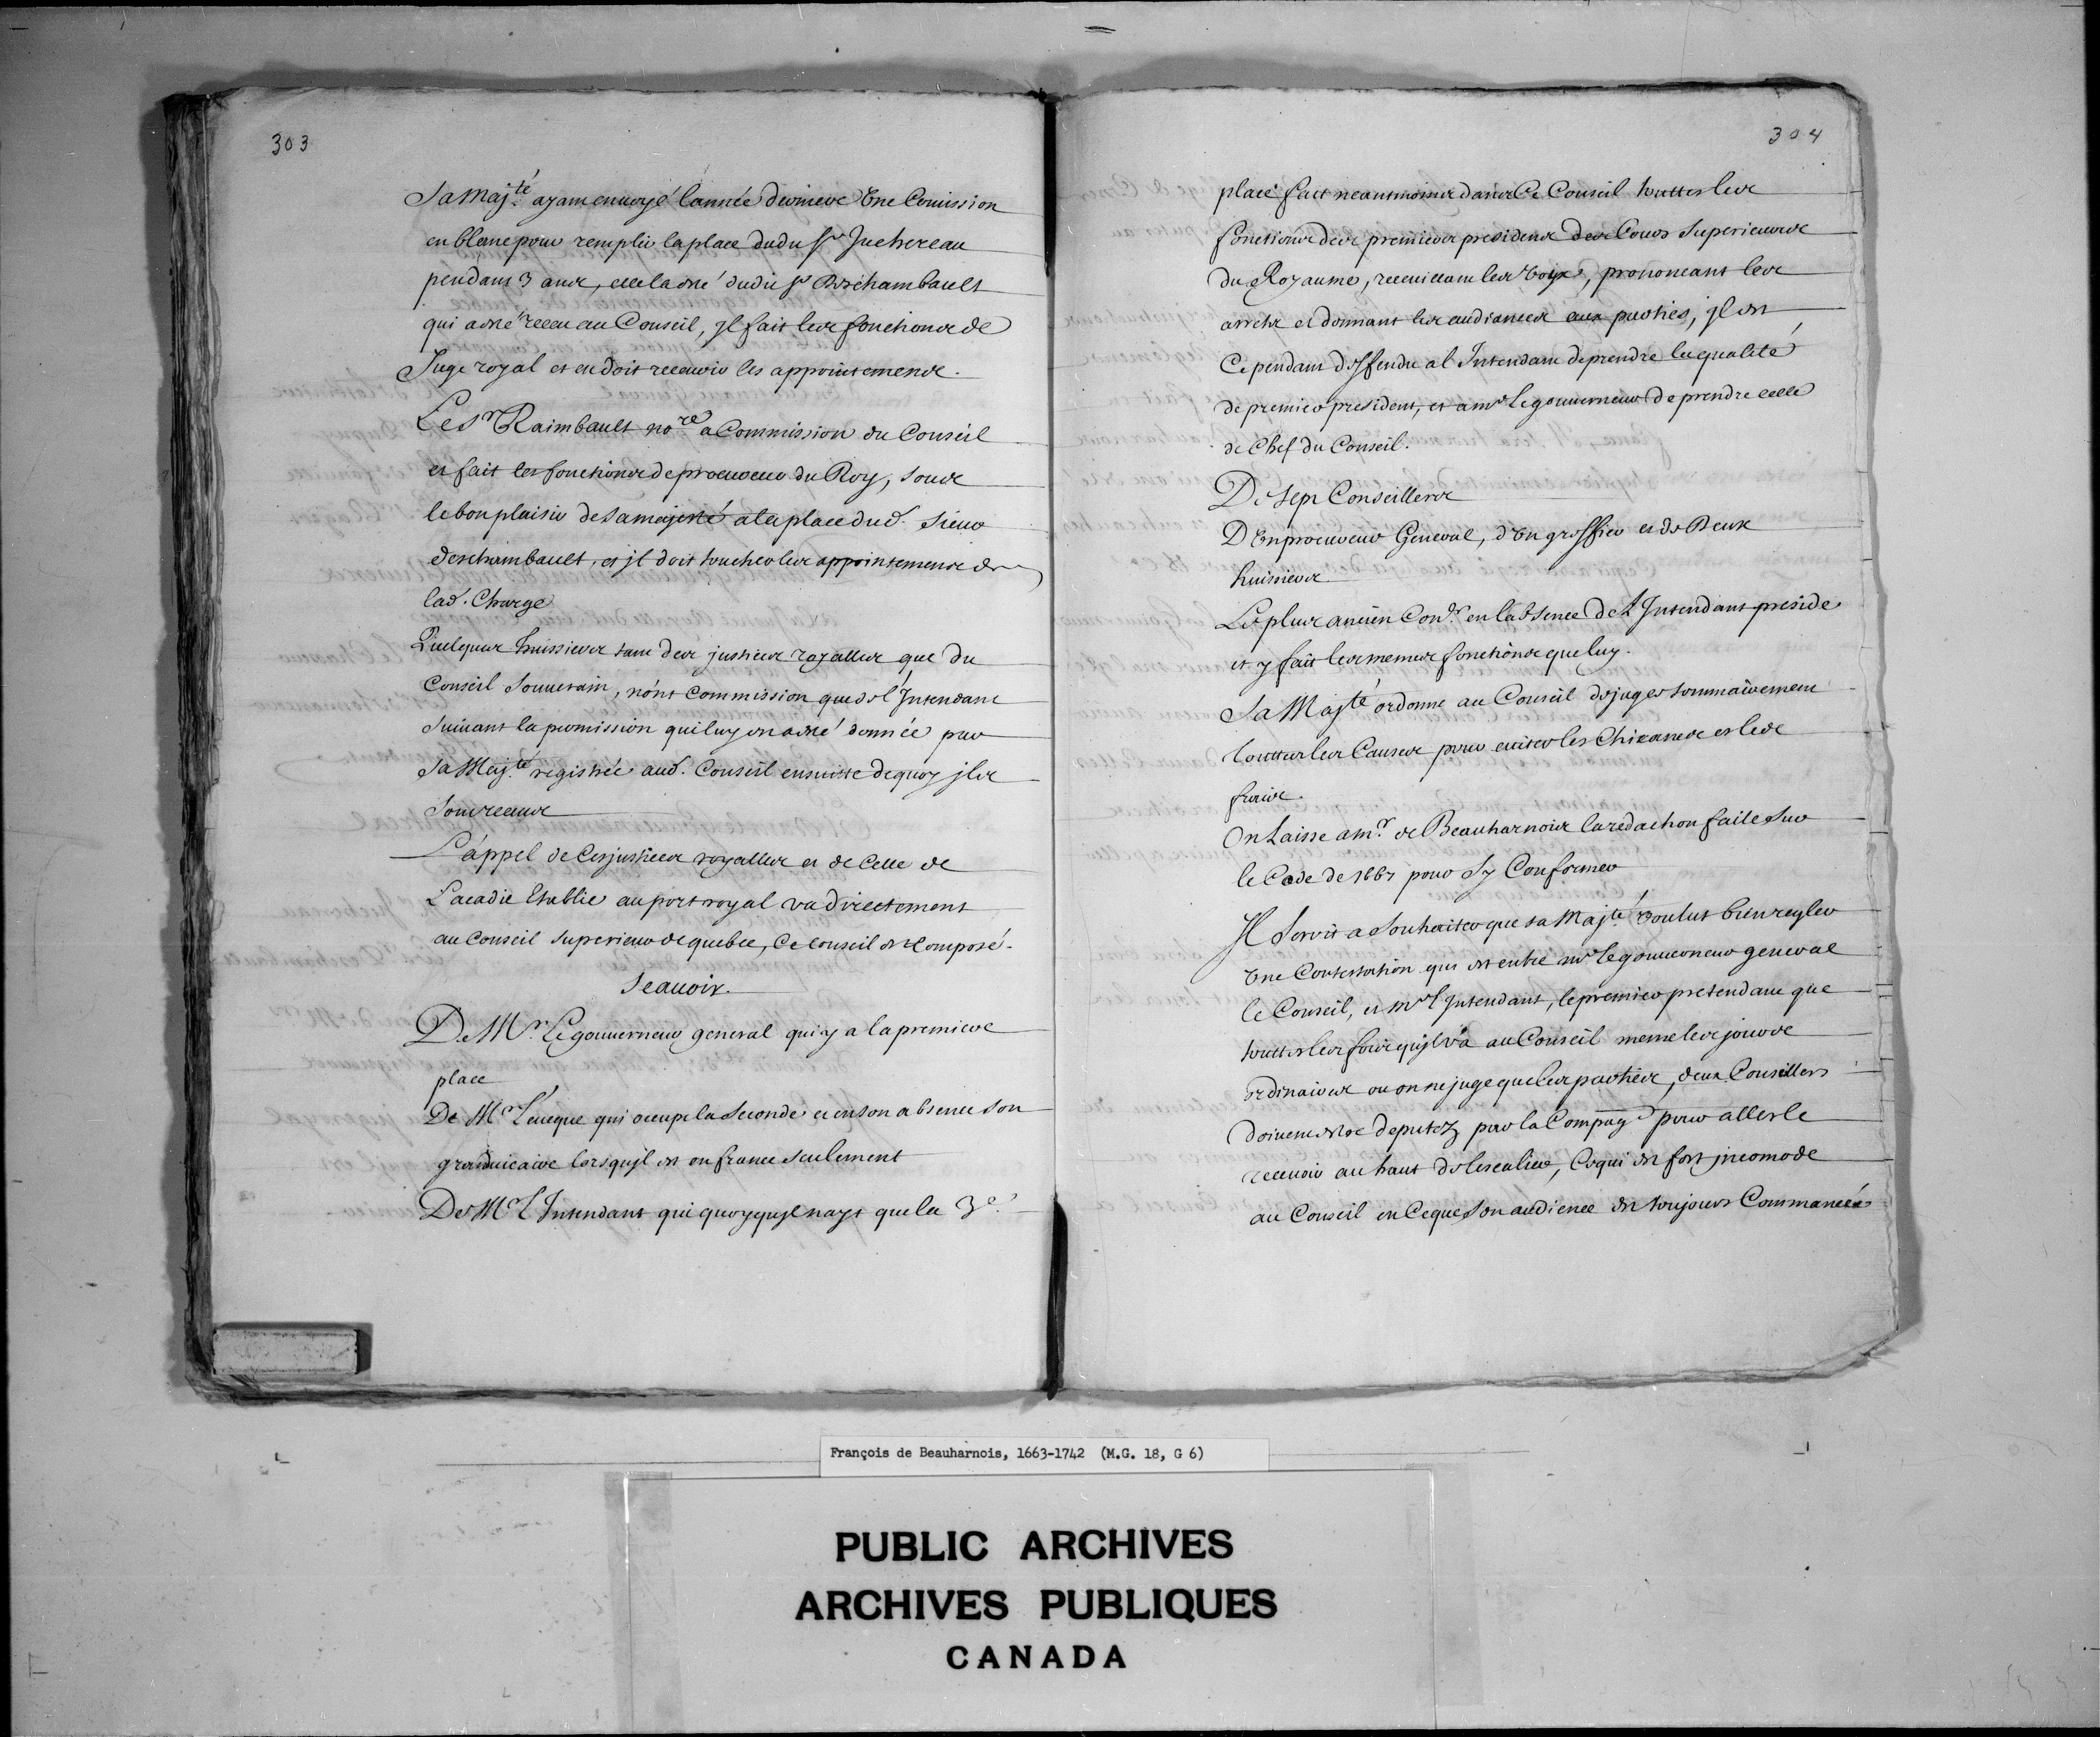 303
Sa Maj.té ayant envoyé l'année derniere Une Comission
en blanc pour remplir la place dudit Sr Juchereau
pendant 3 ans, elle a esté dudit Sr Deschambault
qui a esté receu au Conseil, Jl fait les fonctions de
Juge royal et en doit recevoir les appointements.
Le Sr Raimbault no.re a Commission du Conseil
et fait les fonctions de procureur du Roy, sous
le bon plaisir de Sa majesté a la place dud. Sieur
deschambault, et jl doit toucher les appointements de
lad. Charge
Quelques huissiers tant des justices royalles, que du
Conseil Souverain, n'ont Commission que de l'Jntendant
suivant la permission qui luy en a esté donnée par
Sa Maj.té registrée aud. Conseil ensuitte de quoy jls
sont receus
L'appel de Ces justices royalles et de Celle de
L'acadie Etablie au port royal va directement
au Conseil Superieur de quebec, Ce Conseil est Composé.
Scauoir.
De Mr. Le gouverneur general qui y a la premiere
place
De Mr. L'éueque qui occupe la Seconde et en son absence son
grand vicaire lorsqu'jl est en france seulement
De Mr L'Jntendant qui quoyqu'jl nayt que la 3e.
304
place fait neantmoins dans Ce Conseil touttes les
fonctions des premiers presidens des Cours Superieures
du Royaume, recueillant les voix, prononcant les
arrests et donnant les audiances aux parties, jl est
Cependant deffendu a l'Jntendant de prendre la qualité
de premier president, et a mr le gouverneur de prendre celle
de Chef du Conseil.
De sept Conseillers
D'Un procureur General, d'Un greffier et de Deux
huissiers
Le plus ancien Con.er en l'absence de L'Jntendant preside
et y fait les memes fonctions que luy.
Sa Maj.té ordonne au Conseil de juger sommairement
touttes les Causes pour eviter les Chicanes et les
frais.
On Laisse a mr. de Beauharnois la redaction faite Sur
le Code de 1667 pour S'y Conformer
Jl Seroit a Souhaiter que Sa Maj.té voulut bien regler
Une Contestation qui est entre mr le gouverneur general
le Conseil, et mr l'Jntendant, le premier pretendant que
touttes les fois qu'jl va au Conseil meme les jours
ordinaires ou on ne juge que les parties, deux Conseillers
doivent estre deputez par la Compag.e pour aller le
recevoir au haut de l'escalier, Ce qui est fort jncomode
au Conseil en Ce que Son audience est toujours Commancée
François de Beauharnois, 1663-1742 (M.G. 18, G 6)
PUBLIC ARCHIVES
ARCHIVES PUBLIQUES
CANADA